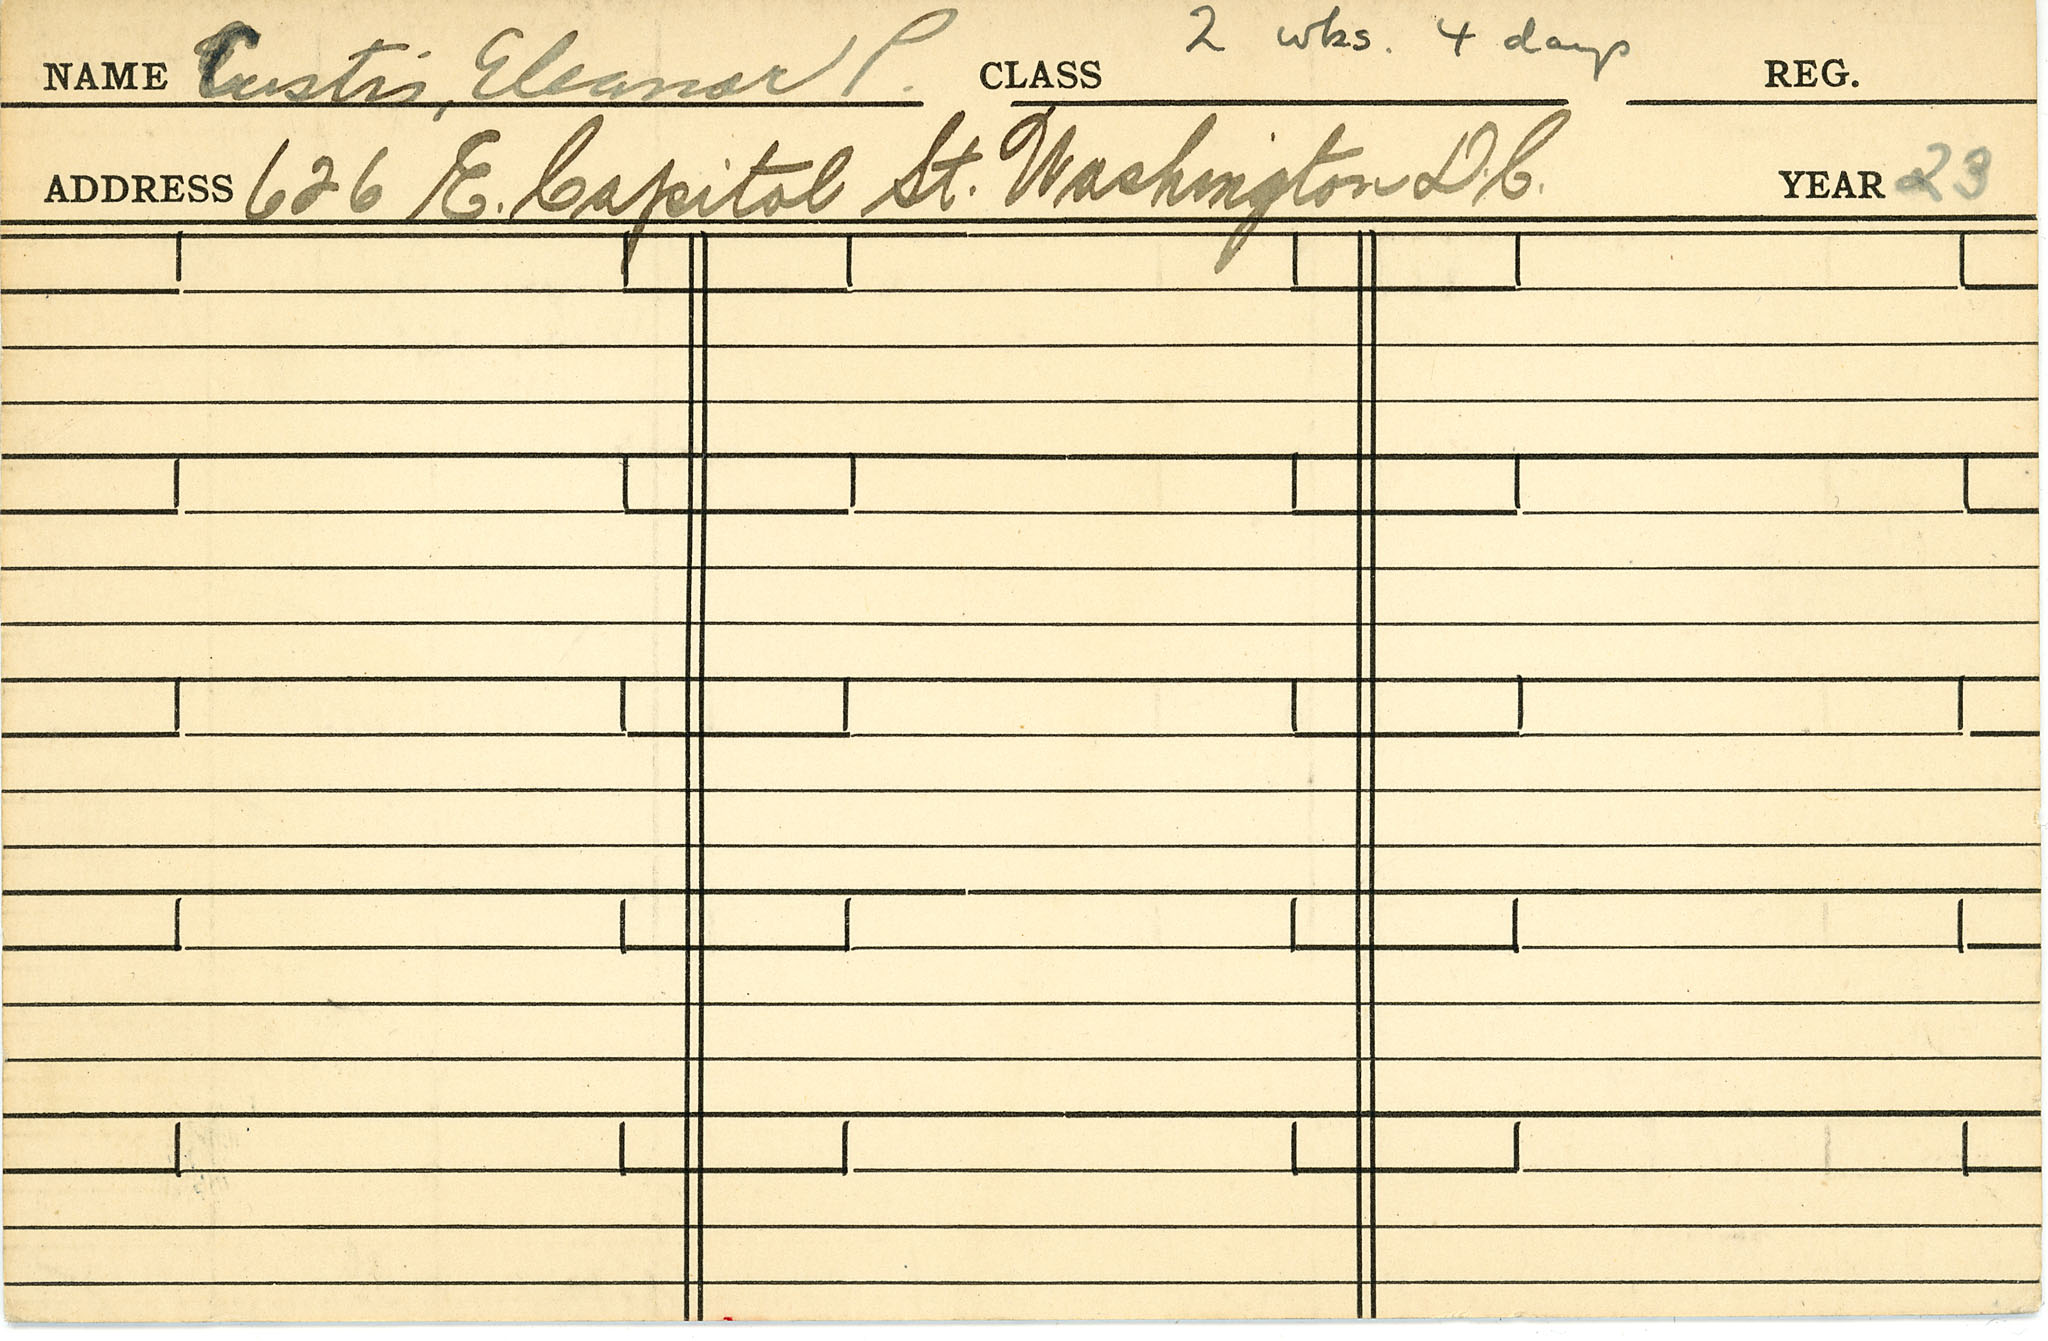 NAME Custis, Eleanor P. CLASS 2 wks. 4 days REG.
ADDRESS 626 E. Capitol St. Washington D.C. YEAR 23